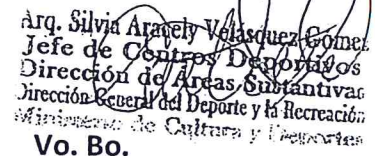 Arq. Silvia Aracely Velásquez Gómez
Jefe de Centros Deportivos
Dirección de Areas Sustantivas
Dirección General del Deporte y la Recreación
Ministerio de Cultura y Deportes
Vo. Bo.